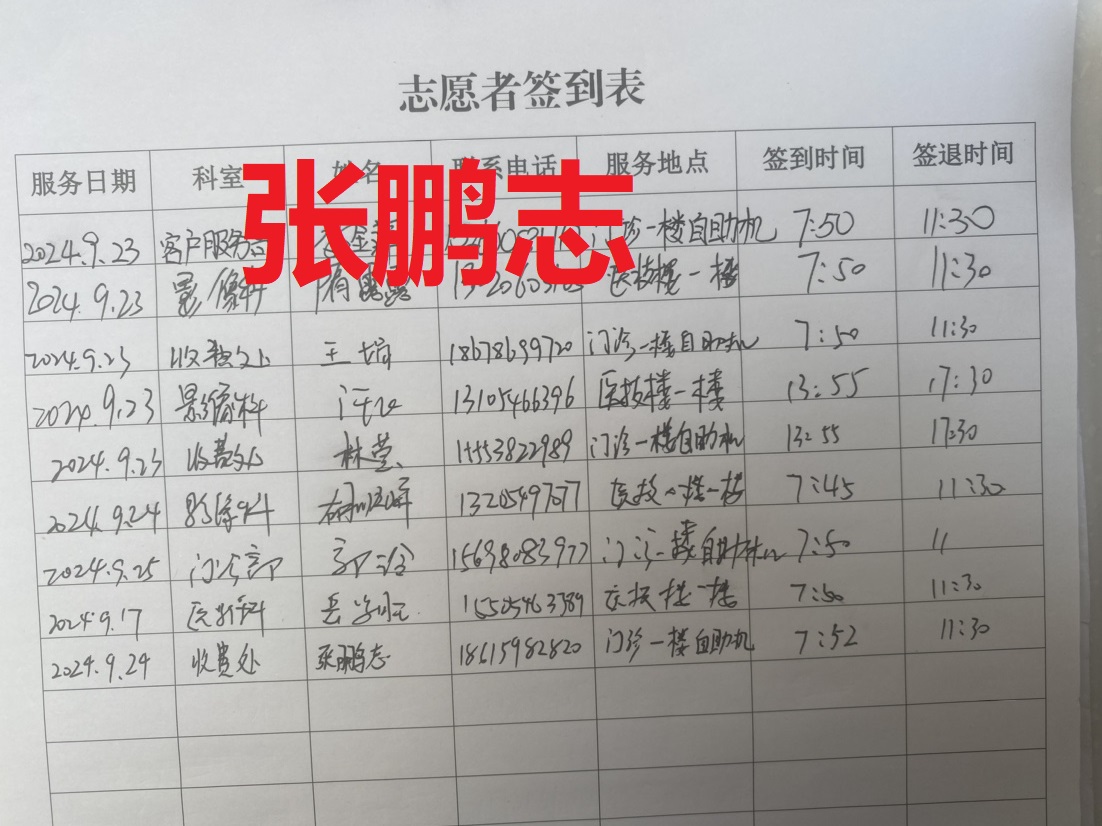 志愿者签到表
服务日期 科室 姓名 联系电话 服务地点 签到时间 签退时间
张鹏志
2024.9.23 客户服务 一楼自助机 7:50 11:30
2024.9.23 影像科 医技楼一楼 7:50 11:30
2024.9.23 收费处 王娟 18678699720 门诊一楼自助机 7:50 11:30
2024.9.23 影像科 13105466396 医技楼一楼 13:55 17:30
2024.9.23 收费处 林莹 15553822989 门诊一楼自助机 13:55 17:30
2024.9.24 影像科 13205497077 医技楼一楼 7:45 11:30
2024.9.25 门诊部 15698083977 门诊一楼自助机 7:50 11
2024.9.17 医技楼一楼 7:50 11:30
2024.9.24 收费处 张鹏志 18615982820 门诊一楼自助机 7:52 11:30